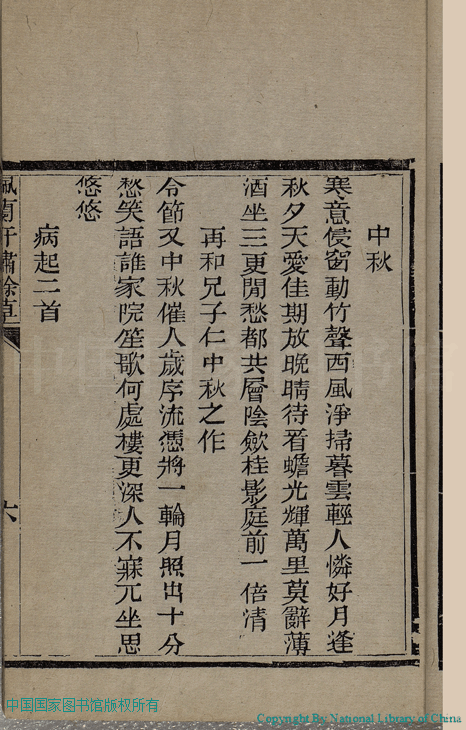 中秋
寒意侵窗動竹聲西風淨掃暮雲輕人憐好月逢
秋夕天愛佳期放晚晴待看蟾光輝萬里莫辭薄
酒坐三更閒愁都共層陰斂桂影庭前一倍清
再和兄子仁中秋之作
令節又中秋催人歲序流憑將一輪月照出十分
愁笑語誰家院笙歌何處樓更深人不寐兀坐思
悠悠
病起二首
六
中国国家图书馆版权所有
Copyright By National Library of China